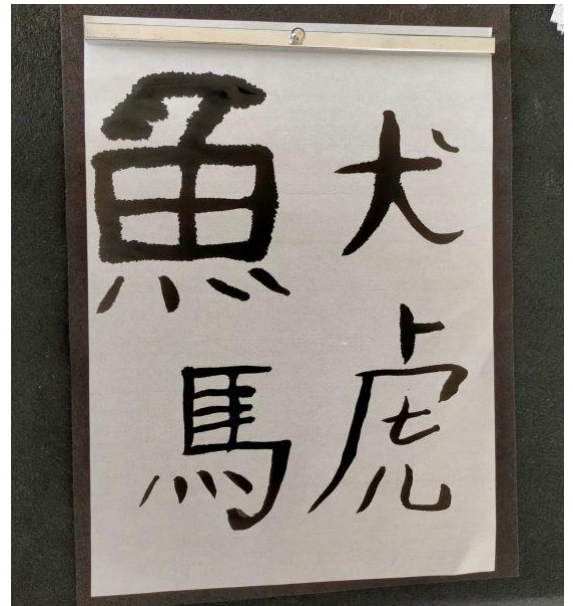 犬虎
魚馬